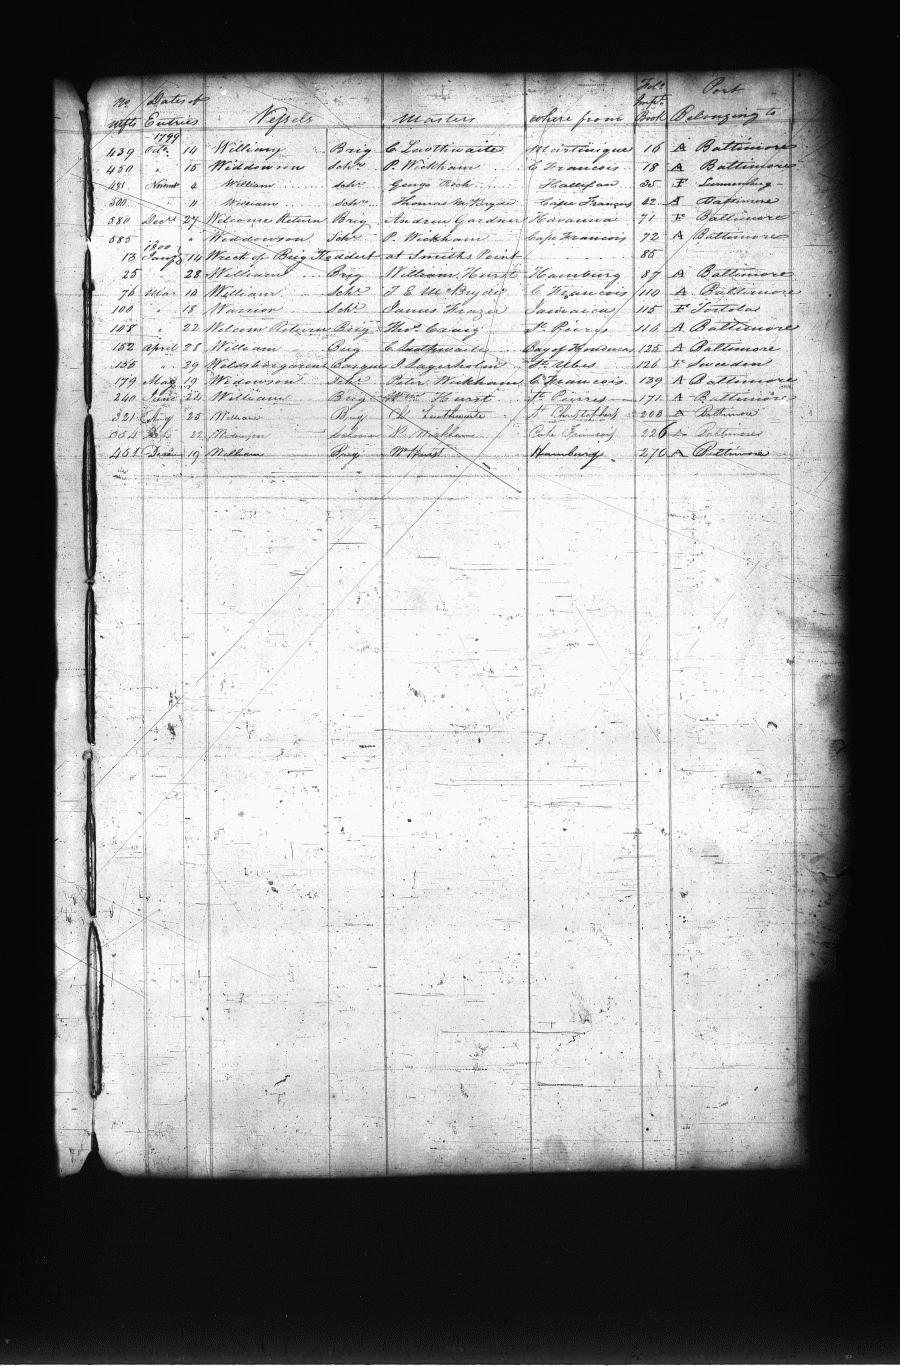 No Dates of Folo Port
Mfts Entries Vessels Masters where from Impt Book Belonging to
1799
439 Octr 14 William Brig C Lowthwaite Martinique 16 A Baltimore
450 " 15 Widdowson Schr P. Wickham C Francois 18 A Baltimore
481 Novemr 4 William Schr George Koch Hallifax 35 F Lunenburg
500 " 11 William Schr Thomas McBryde Cape Francois 42 A Baltimore
580 Decr 27 Welcome Return Brig Andrew Gardner Havanna 71 F Baltimore
585 " " Widdowson Schr P. Wickham Cape Francois 72 A Baltimore
1800
13 Jany 14 Wreck of Brig at Smiths Point 85
25 28 William Brig William Hurst Hamburg 87 A Baltimore
76 Mar 10 William Schr J E McBryde C Francois 110 A Baltimore
100 " 18 Warrior Schr James Frazer Jamaica 115 F Tortola
108 " 22 Welcom Return Brig Thos Craig St Pierrs 116 A Baltimore
152 April 28 William Brig C Lowthwaite Bay of Honduras 125 A Baltimore
155 " 29 Barque J Lagerholm St Ubes 126 F Sweeden
179 May 19 Widowson Schr Peter Wickham C Francois 139 A Baltimore
240 June 22 William Brig Wm Hurst St Pierres 171 A Baltimore
321 25 William Brig C Lowthwaite St Christophers 203 A Baltimore
354 22 P. Wickham Cape Francois 226 Baltimore
451 Decr 19 William Brig Wm Hurst Hamburg 270 A Baltimore